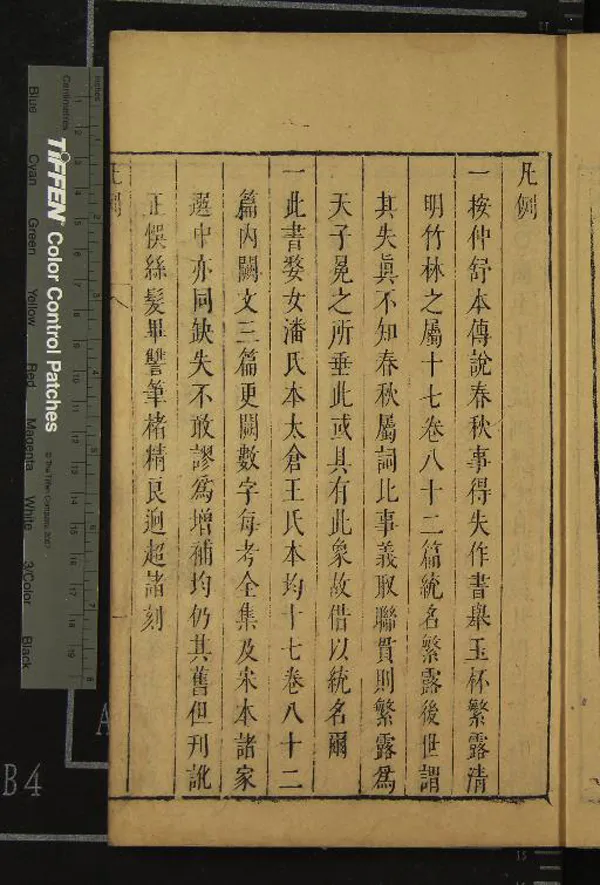 凡例
一按仲舒本傳說春秋事得失作書舉玉杯繁露清
明竹林之屬十七卷八十二篇統名繁露後世謂
其失眞不知春秋屬詞比事義取聯貫則繁露爲
天子冕之所垂此或具有此象故借以統名爾
一此書婺女潘氏本太倉王氏本均十七卷八十二
篇內闕文三篇更闕數字每考全集及宋本諸家
選中亦同缺失不敢謬爲增補均仍其舊但刊訛
正悞絲髮畢讐筆楮精良逈超諸刻
凡例
一
inches
Centimetres
TIFFEN Color Control Patches
© The Tiffen Company, 2007
Blue
Cyan
Green
Yellow
Red
Magenta
White
3/Color
Black
1 2 3 4 5 6 7 8
1 2 3 4 5 6 7 8 9 10 11 12 13 14 15 16 17 18 19
B4
A
11
15